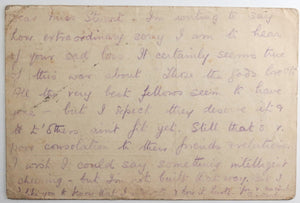 Dear Miss Stewart - I'm writing to say
how extraordinary sorry I am to hear
of your sad loss. It certainly seems true
of this war about "Those the gods love"
All the very best fellows seem to have
gone - but I expect they deserve it &
t'others aint fit yet. Still that is a
poor consolation to their friends & relations.
I wish I could say something intelligent
cheering - but I'm not built that way. So I
I like you to know that I